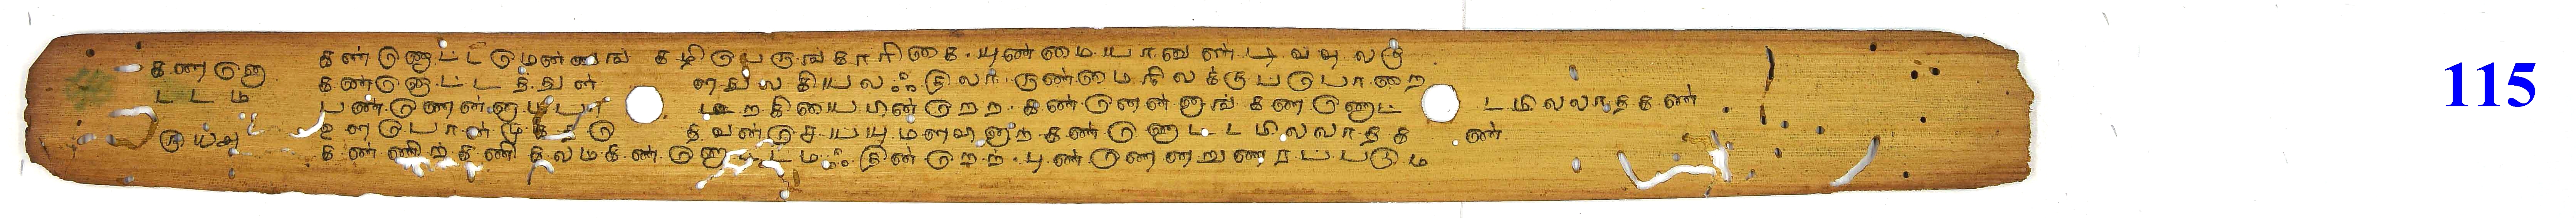 கணணொ
டடம
௫௰௮
கண்ணொட்டமென்னுங் கழிபெருங்காரிகை யுண்மையானுண்டிவவுலகு
கண்ணொட்டத்துள் ளதுலகியலஃதிலா ருண்மைநிலக்குப்பொறை
பண்ணென்னாம்பா டற்கியைபின்றெற கண்ணென்னாங்கண்ணொட் டமிலலாதகண்
உளபொன்முகத்தெ தவன்செய்யுமளவினாற்கண்ணொட்டமிலலாதக ண்
கண்ணிற்கணிகலமகண்ணொட்டமஃதின்றெற்புண்ணெனறுணரப்படும